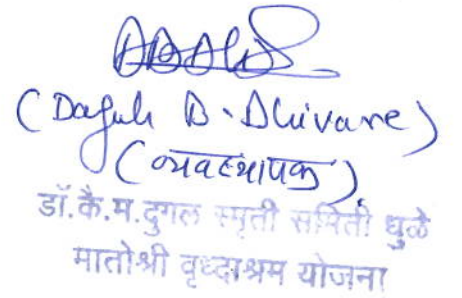 (Daguh D. Dhivare)
(व्यवस्थापक)
डॉ.कै.म.दुगल स्मृती समिती धुळे
मातोश्री वृध्दाश्रम योजना